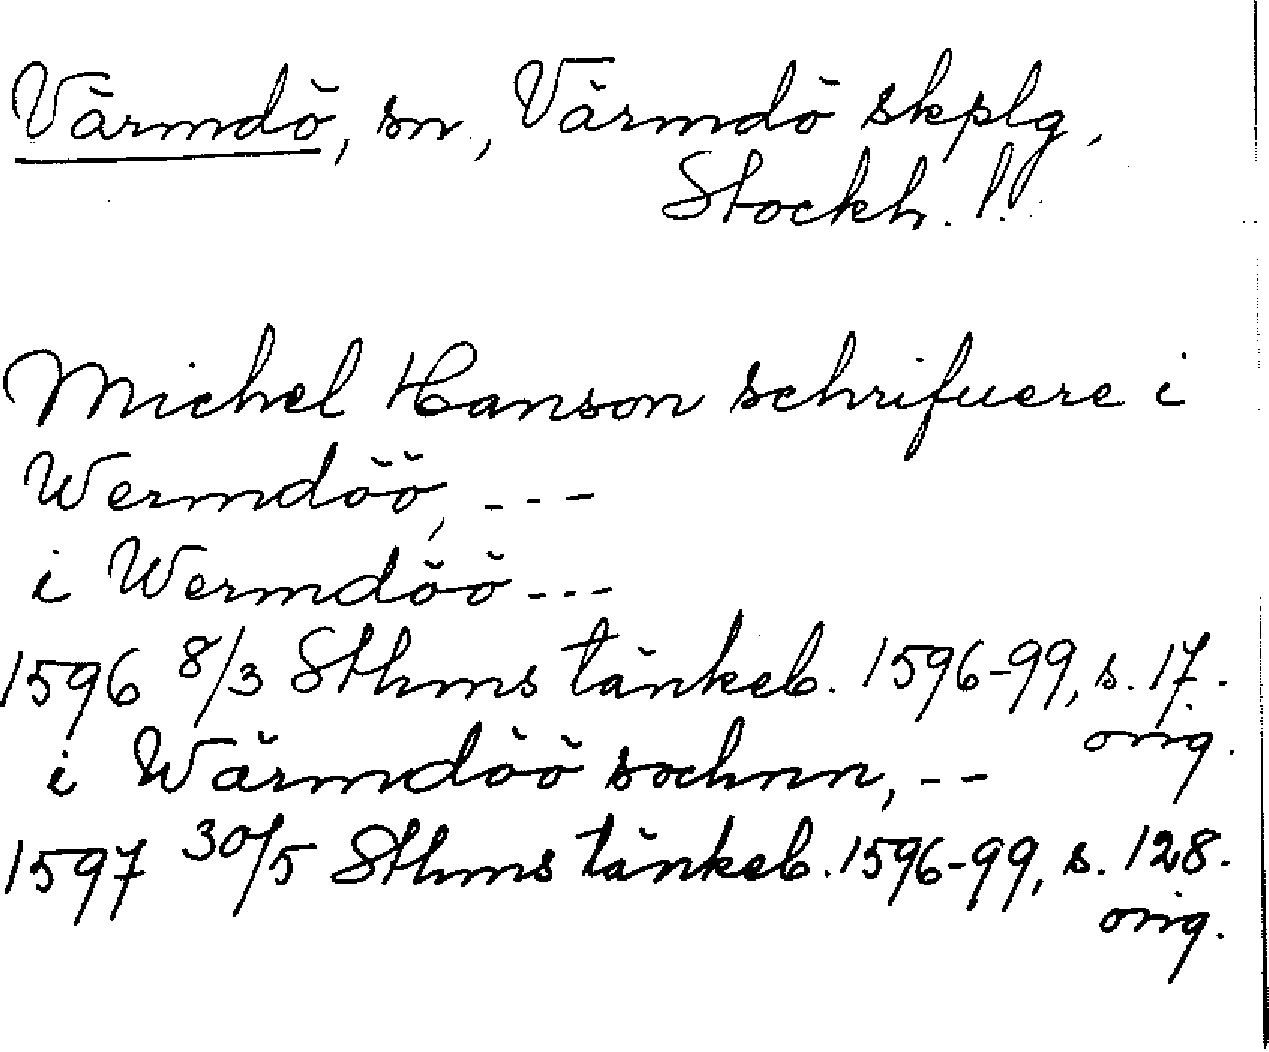 Värmdö, sn, Värmdö skplg,
Stockh. l.
Michel Hanson schrifuere i
Wermdöö, ---
i Wermdöö ---
1596 8/3 Sthms tänkeb. 1596-99, s. 17.
orig.
i Wärmdöö sochnn, --
1597 30/5 Sthms tänkeb. 1596-99, s. 128.
orig.